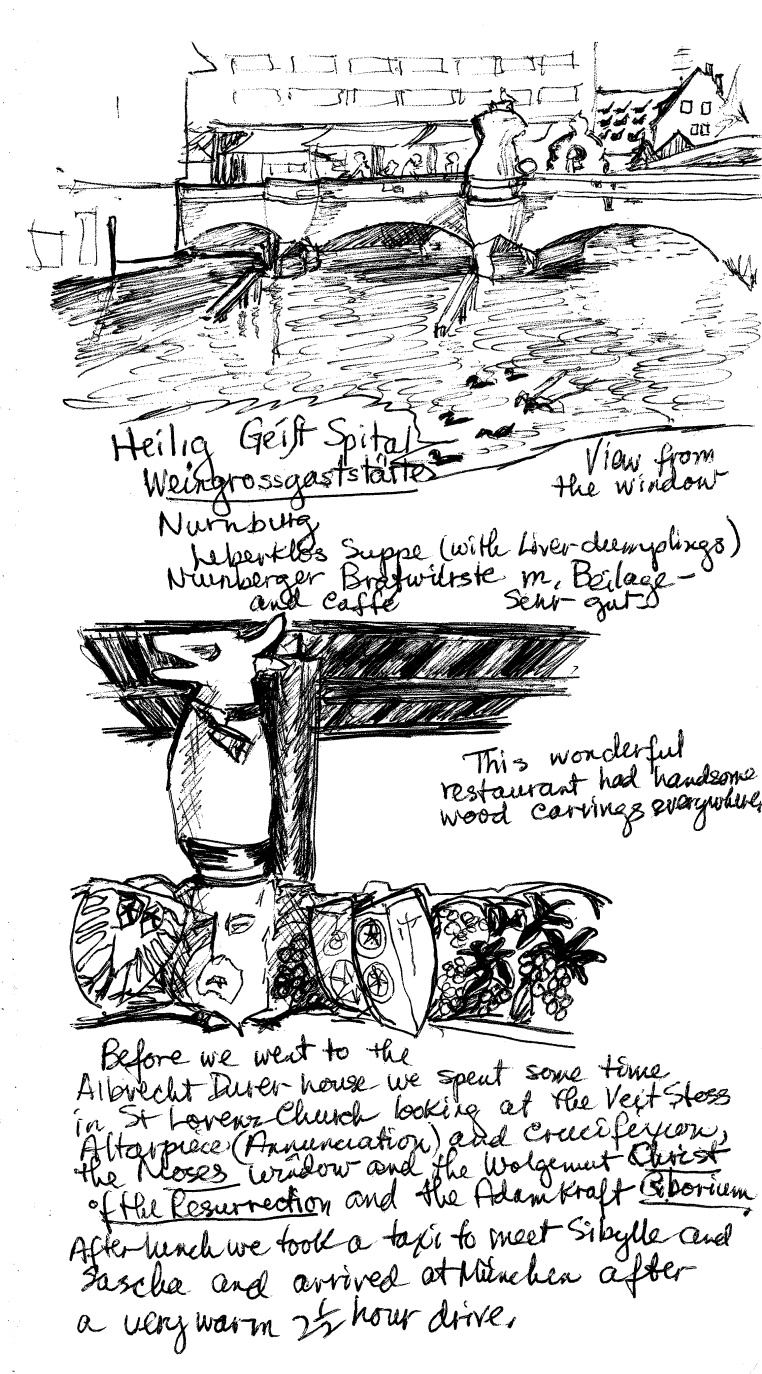 Heilig Geist Spital
Weingrossgaststätte
View from
the window
Nurnburg
Leberklos Suppe (with Liver-dumplings)
Nurnberger Bratwürste m. Beilage -
and caffe Sehr gut
This wonderful
restaurant had handsome
wood carvings everywhere,
Before we went to the
Albrecht Durer house we spent some time
in St Lorenz Church looking at the Veit Stoss
Altarpiece (Annunciation) and Crucifixion,
the Moses window and the Wolgemut Christ
of the Resurrection and the Adam Kraft Ciborium
After lunch we took a taxi to meet Sibylle and
Sascha and arrived at München after
a very warm 2½ hour drive.